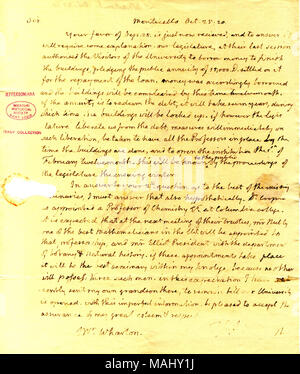 Monticello Oct. 28. 20.
Your favor of Sep. 28. is just now received, and to answer it
will require some explanation. our legislature, at their last session
authorised the Visitors of the University to borrow money to finish
the buildings, pledging the public annuity of 15,000.D. settled on it
for the repayment of the loan. money was accordingly borrowed
and the buildings will be compleated by this time twelvemonth.
if the annuity is to redeem the debt, it will take seven years, during
which time the buildings will be locked up. if however the legis-
lature liberate us from the debt, measures will immediately on
such liberation be taken to have all the Professors in place by the
time the buildings are done, and to open the institution the 1st of
February twelvemonth. this will be known to the public by the proceedings of
the legislature the ensuing winter.
In answer to your 2d question as to the best of the existing
seminaries, I must answer that also hypothetically. Dr. Cooper
is appointed a Professor of Chemistry &c at Columbia college.
it is expected that at the next meeting of their trustees,
one of the best Mathematicians in the US. will be appointed to
that professorship, and Mr Elliot President with the department
of botany & Natural history. if these appointments take place
it will be the best seminary within my knolege. because no other
will possess three such men. in this expectation I have
sent my own grandson there, to remain till our University
is opened. with this imperfect information, be pleased to accept the
assurance of my great esteem & respect.
Wharton.
JEFFERSONIANA
MISSOURI
HISTORICAL
SOCIETY
BIXBY COLLECTION
alamy
Image ID: MAHY1J
www.alamy.com